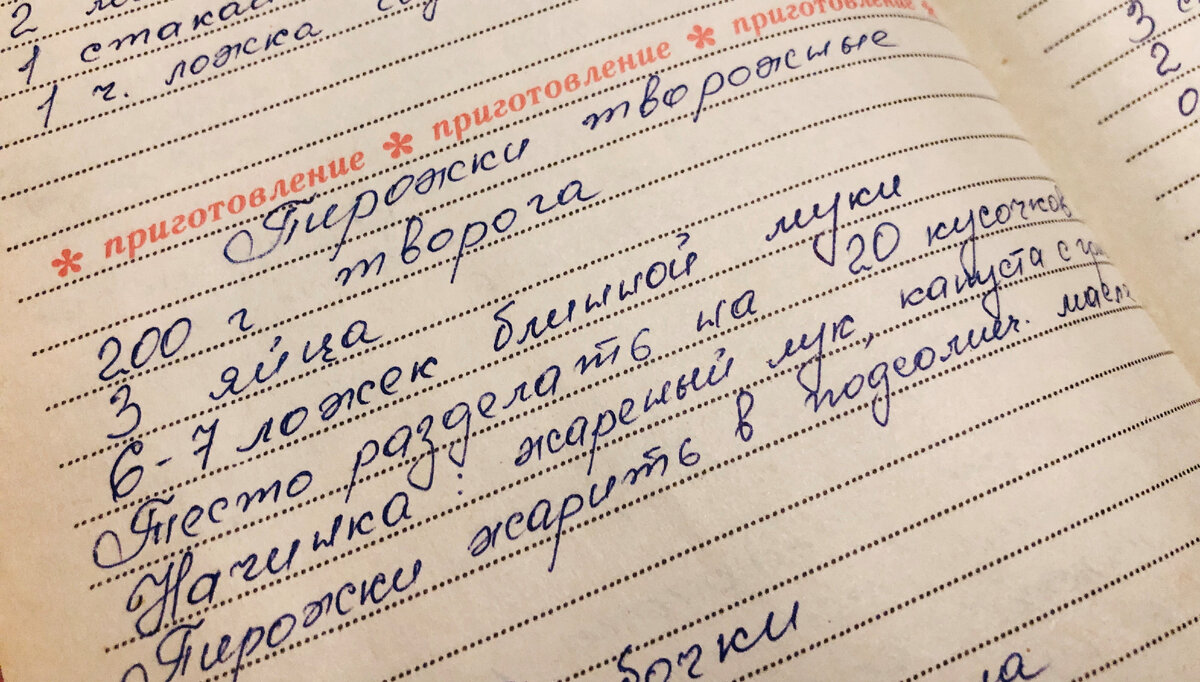 2
1 стака
1 ч. ложка
* приготовление * приготовление * приготовление *
Пирожки творожные
200 г творога
3 яйца
6-7 ложек блинной муки
Тесто разделать на 20 кусочков
Начинка: жареный лук, капуста с
Пирожки жарить в подсолнч. масл
бочки
3
2